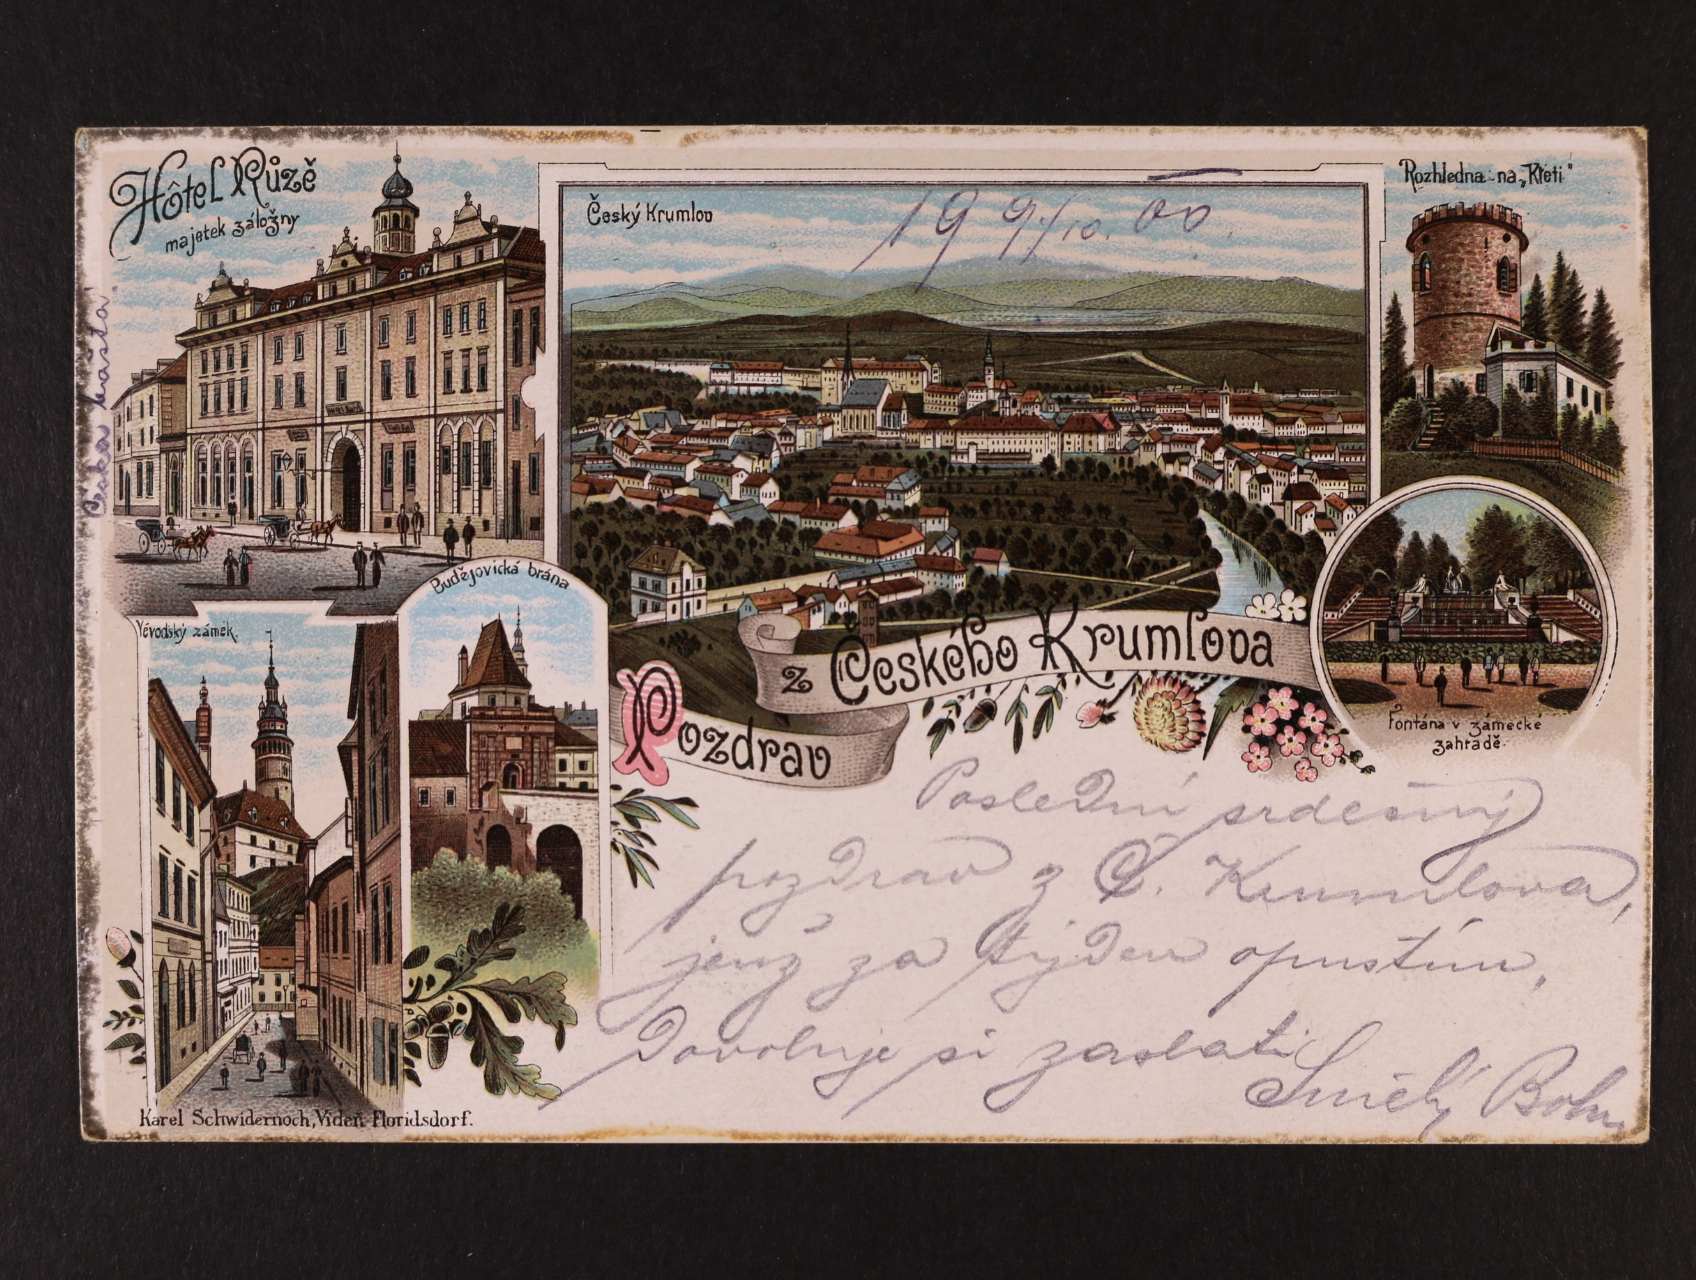 Hôtel Růzě
majetek záložny
Český Krumlov
19 9/10. 00.
Rozhledna na „Kleti"
Budějovická brána
Vévodský zámek.
Pozdrav
z Českého Krumlova
Fontána v zámecké
zahradě.
Poslední srdečný
pozdrav z Č. Krumlova,
jenž za týden opustím,
Dovoluje si zaslati
Karel Schwidernoch, Vídeň-Floridsdorf.